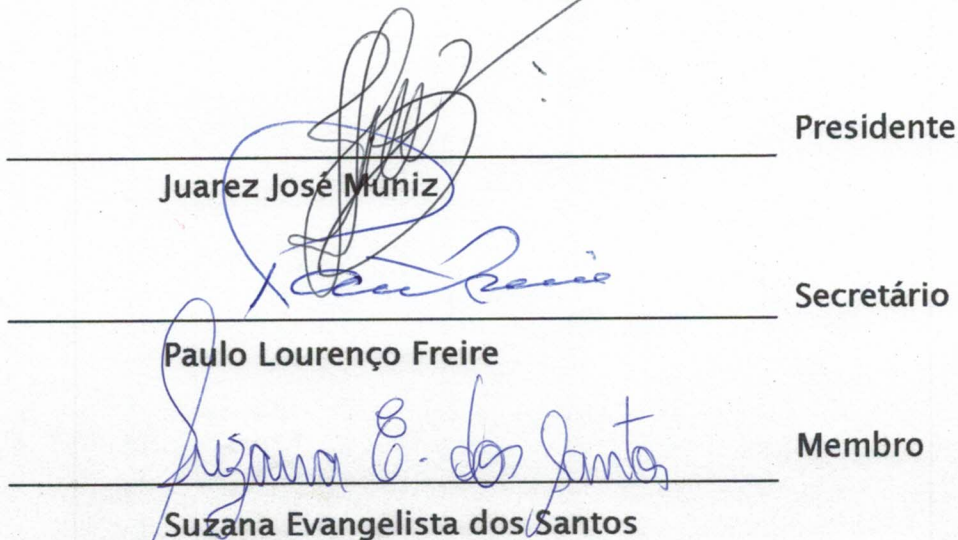 Presidente
Juarez José Muniz
Secretário
Paulo Lourenço Freire
Suzana E. dos Santos
Membro
Suzana Evangelista dos Santos